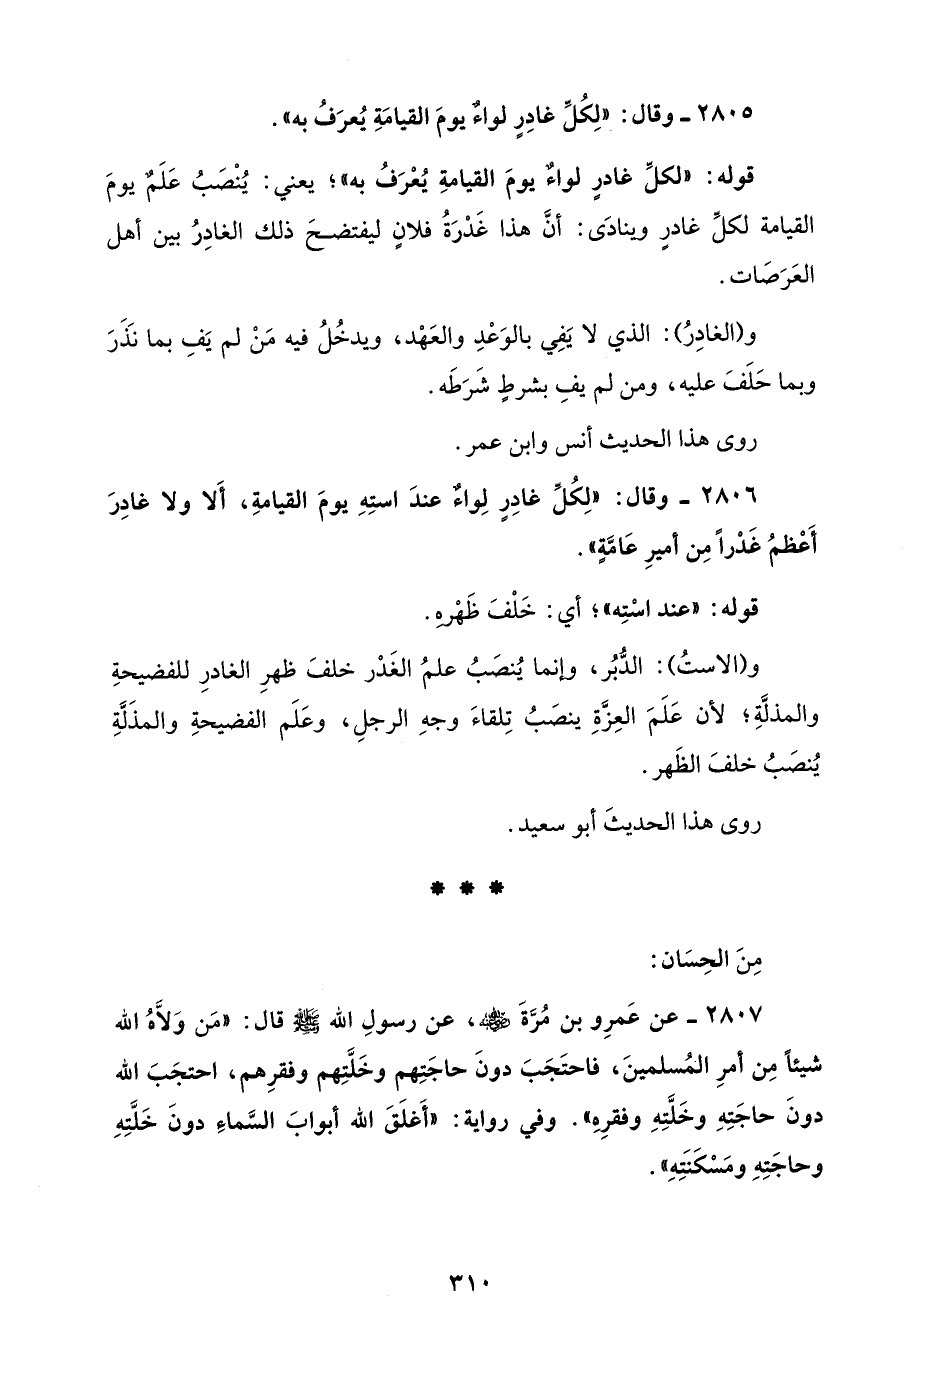 ٢٨٠٥ ـ وقال: «لِكُلِّ غادِرٍ لواءٌ يومَ القيامَةِ يُعرَفُ به».
قوله: «لكلِّ غادرٍ لواءٌ يومَ القيامةِ يُعْرَفُ به»؛ يعني: يُنْصَبُ عَلَمٌ يومَ
القيامة لكلِّ غادرٍ وينادَى: أنَّ هذا غَدْرَةُ فلانٍ ليفتضحَ ذلك الغادِرُ بين أهل
العَرَصَات.
و(الغادِرُ): الذي لا يَفِي بالوَعْدِ والعَهْد، ويدخُلُ فيه مَنْ لم يَفِ بما نذَرَ
وبما حَلَفَ عليه، ومن لم يفِ بشرطٍ شَرَطَه.
روى هذا الحديث أنس وابن عمر.
٢٨٠٦ ـ وقال: «لِكُلِّ غادِرٍ لِواءٌ عندَ استِهِ يومَ القيامةِ، أَلا ولا غادِرَ
أَعْظمُ غَدْراً مِن أميرِ عَامَّةٍ».
قوله: «عند اسْتِه»؛ أي: خَلْفَ ظَهْرِهِ.
و(الاستُ): الدُّبُر، وإنما يُنصَبُ علمُ الغَدْر خلفَ ظهرِ الغادرِ للفضيحةِ
والمذلَّةِ؛ لأن عَلَمَ العِزَّةِ ينصَبُ تِلقاءَ وجهِ الرجلِ، وعَلَم الفضيحةِ والمذَلَّةِ
يُنصَبُ خلفَ الظَهر.
روى هذا الحديثَ أبو سعيد.
* * *
مِنَ الحِسَان:
٢٨٠٧ ـ عن عَمرِو بن مُرَّةَ ﷺ، عن رسولِ الله ﷺ قال: «مَن وَلاَّهُ الله
شيئاً مِن أمرِ المُسلمينَ، فاحتَجَبَ دونَ حاجَتِهم وخَلَّتِهم وفقرِهم، احتجَبَ الله
دونَ حاجَتِهِ وخَلَّتِهِ وفقرِهِ». وفي رواية: «أَغلَقَ الله أبوابَ السَّماءِ دونَ خَلَّتِهِ
وحاجَتِهِ ومَسْكَنَتِهِ».
٣١٠